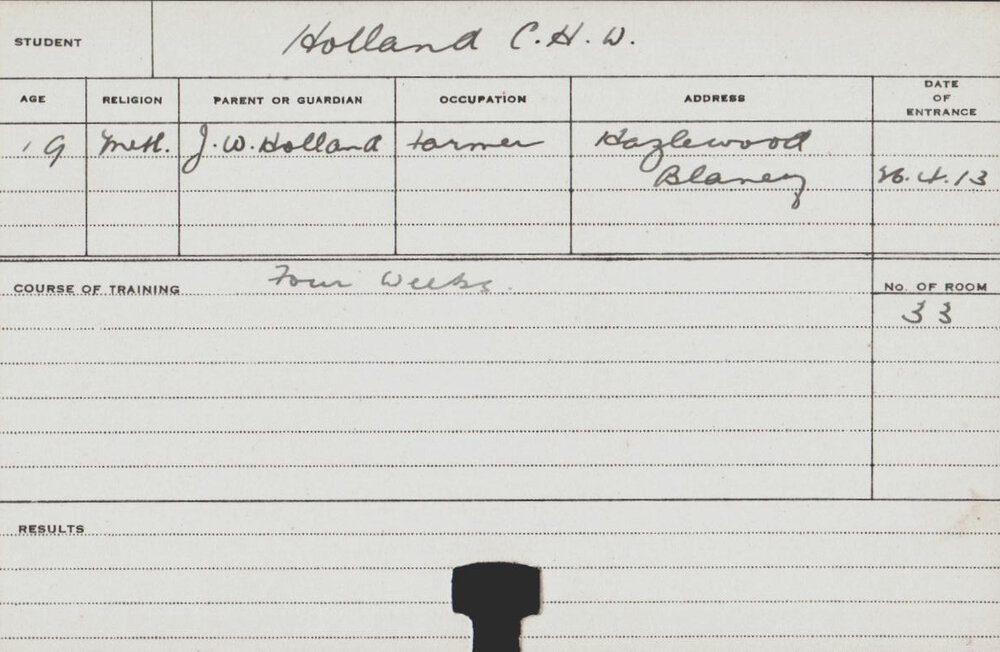 STUDENT Holland C.H.W.
AGE RELIGION PARENT OR GUARDIAN OCCUPATION ADDRESS DATE OF ENTRANCE
19 Meth. J.W. Holland Farmer Hazlewood
Blaney 26.4.13
COURSE OF TRAINING Four Weeks. No. OF ROOM
33
RESULTS